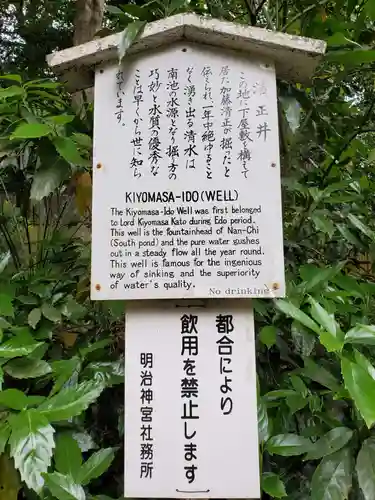 清正井
この地に下屋敷を構えて
居た加藤清正が掘ったと
伝えられ一年中絶ゆること
なく湧き出る清水は
南池の水源となり掘り方の
巧妙・水質の優秀な
ことは早くから世に知ら
れています。
KIYOMASA-IDO(WELL)
The Kiyomasa-Ido Well was first belonged
to Lord Kiyomasa Kato during Edo period.
This well is the fountainhead of Nan-Chi
(South pond) and the pure water gushes
out in a steady flow all the year round.
This Well is known for the ingenious
way of sinking and the superiority
of water's quality.
No drinking
都合により
飲用を禁止します
明治神宮社務所